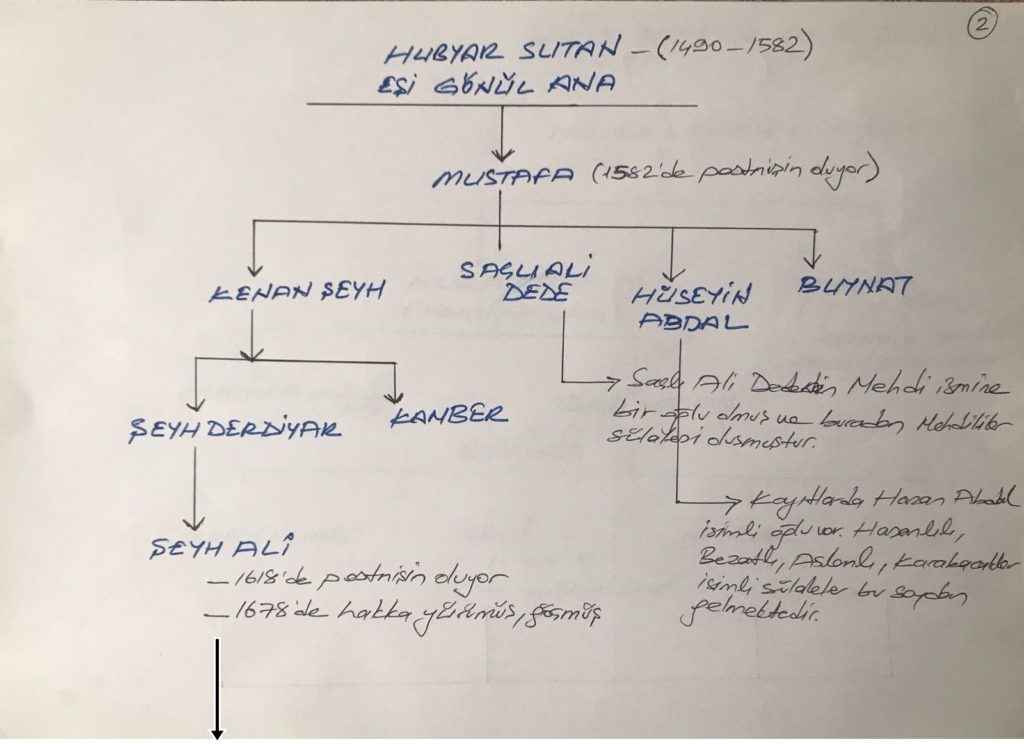 2
HUBYAR SULTAN – (1490–1582)
EŞİ GÖNÜL ANA
MUSTAFA (1582'de postnişin oluyor)
KENAN ŞEYH
SAÇLI ALİ
DEDE
HÜSEYİN
ABDAL
BUYNAT
ŞEYH DERDİYAR
KAMBER
Saçlı Ali Dedenin Mehdi ismine
bir oğlu olmuş ve buradan Mehdililer
sülalesi
ŞEYH ALİ
– 1618'de postnişin oluyor
– 1678'de hakka yürümüş, göçmüş
Kayıtlarda Hasan Abdal
isimli oğlu var. Hasanlılı,
Bezatlı, Aslanlı,
isimli sülaleler bu soydan
gelmektedir.